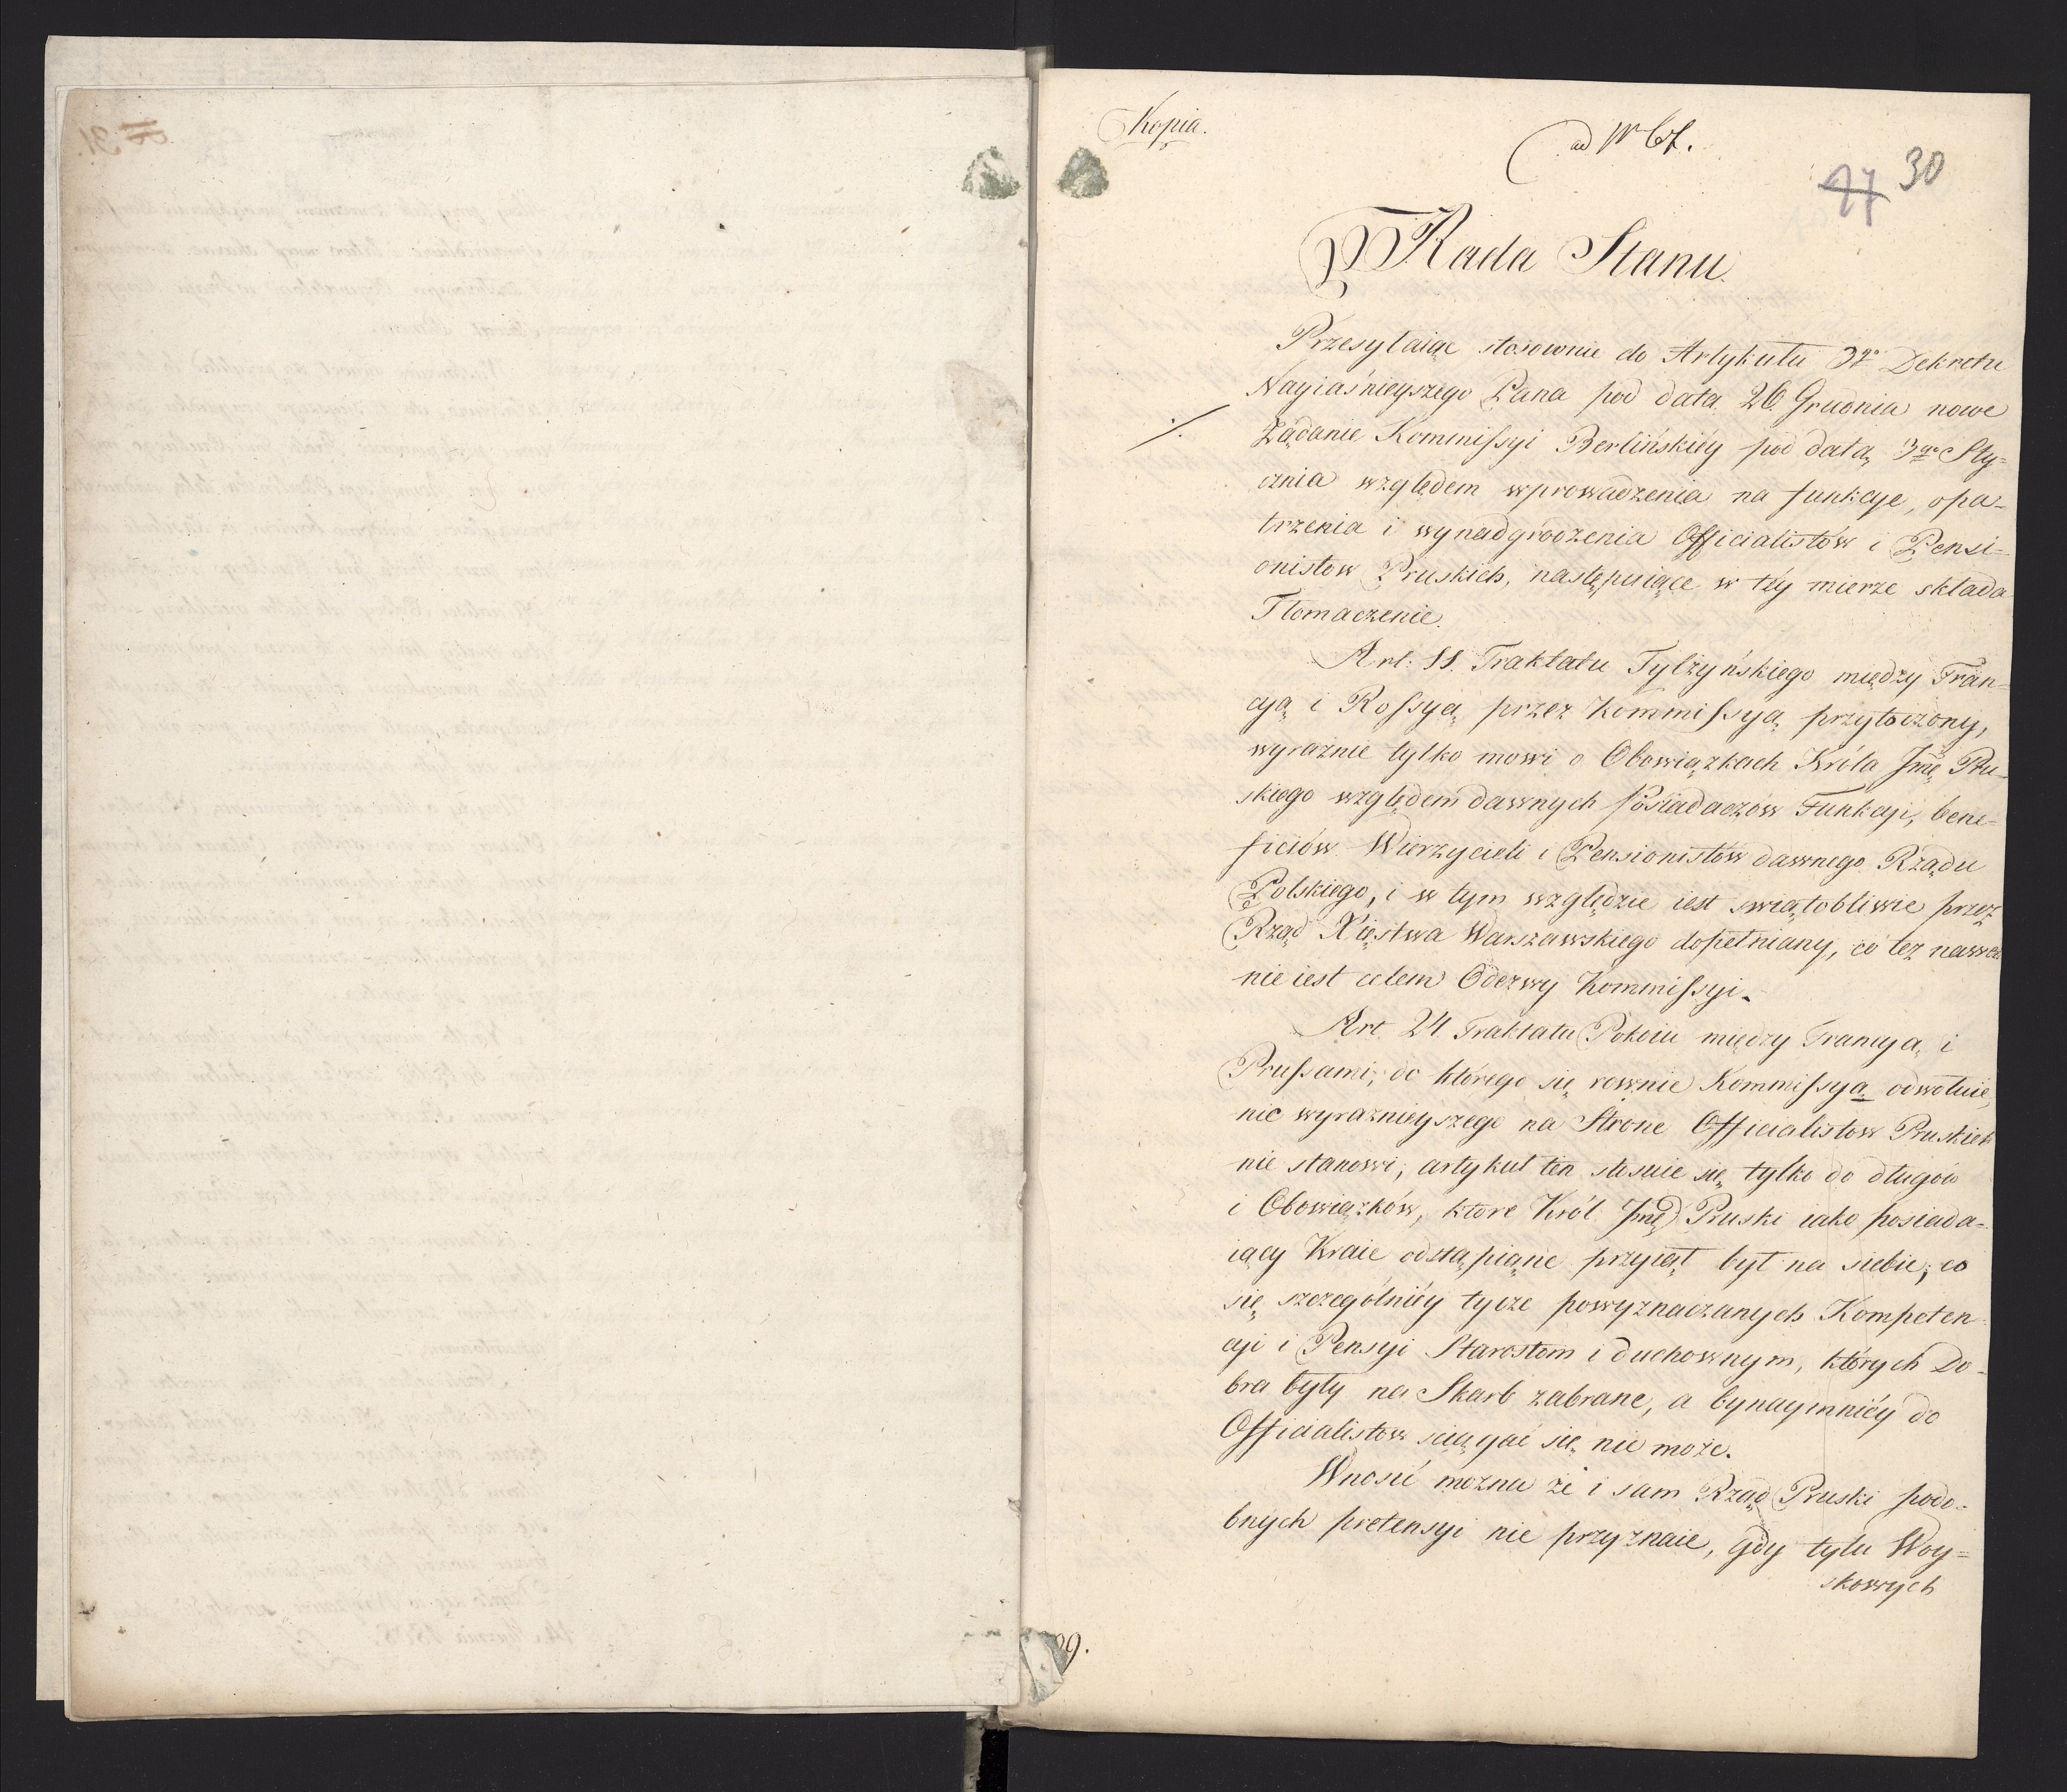 Kopia.
ad Nr 67.
27 30
Rada Stanu
Przesyłaiąc stosownie do Artykułu 3go Dekretu
Nayiaśnieyszego Pana pod datą 26 Grudnia nowe
Żądanie Kommissyi Berlińskiéy pod datą 3go Sty=
cznia względem wprowadzenia na funkcye, opa=
trzenia i wynadgrodzenia Officialistów i Pensi=
onistow Pruskich, następuiące w téy mierze składa
Tłomaczenie.
Art: 11. Traktatu Tylżyńskiego między Fran=
cyą i Rossyą przez Kommissyą przytoczony,
wyraźnie tylko mowi o Obowiązkach Króla Jmę Pru=
skiego względem dawnych Posiadaczów Funkcyi, bene=
ficiów Wierzycieli i Pensionistów dawnego Rządu
Polskiego, i w tym względzie iest swiątobliwie przez
Rząd Xięstwa Warszawskiego dopełniany, co też nawet
nie iest celem Odezwy Kommissyi.
Art. 24 Traktatu Pokoiu między Francyą i
Prussami, do którego się rownie Kommissya odwołuie,
nic wyraznieyszego na Stronę Officialistow Pruskich
nie stanowi, artykuł ten stosuie się tylko do długów
i Obowiązków, ktore Król Jmę Pruski iako posiada=
iący Kraie odstąpione przyiął był na siebie, co
się szczególniéy tycze powyznaczanych Kompeten=
cyi i Pensyi Starostom i duchownym, których Do=
bra były na Skarb zabrane, a bynaymniéy do
Officialistow sciągać się nie może.
Wnosić można że i sam Rząd Pruski podo=
bnych pretensyi nie przyznaie, gdy tylu Woy=
skowych